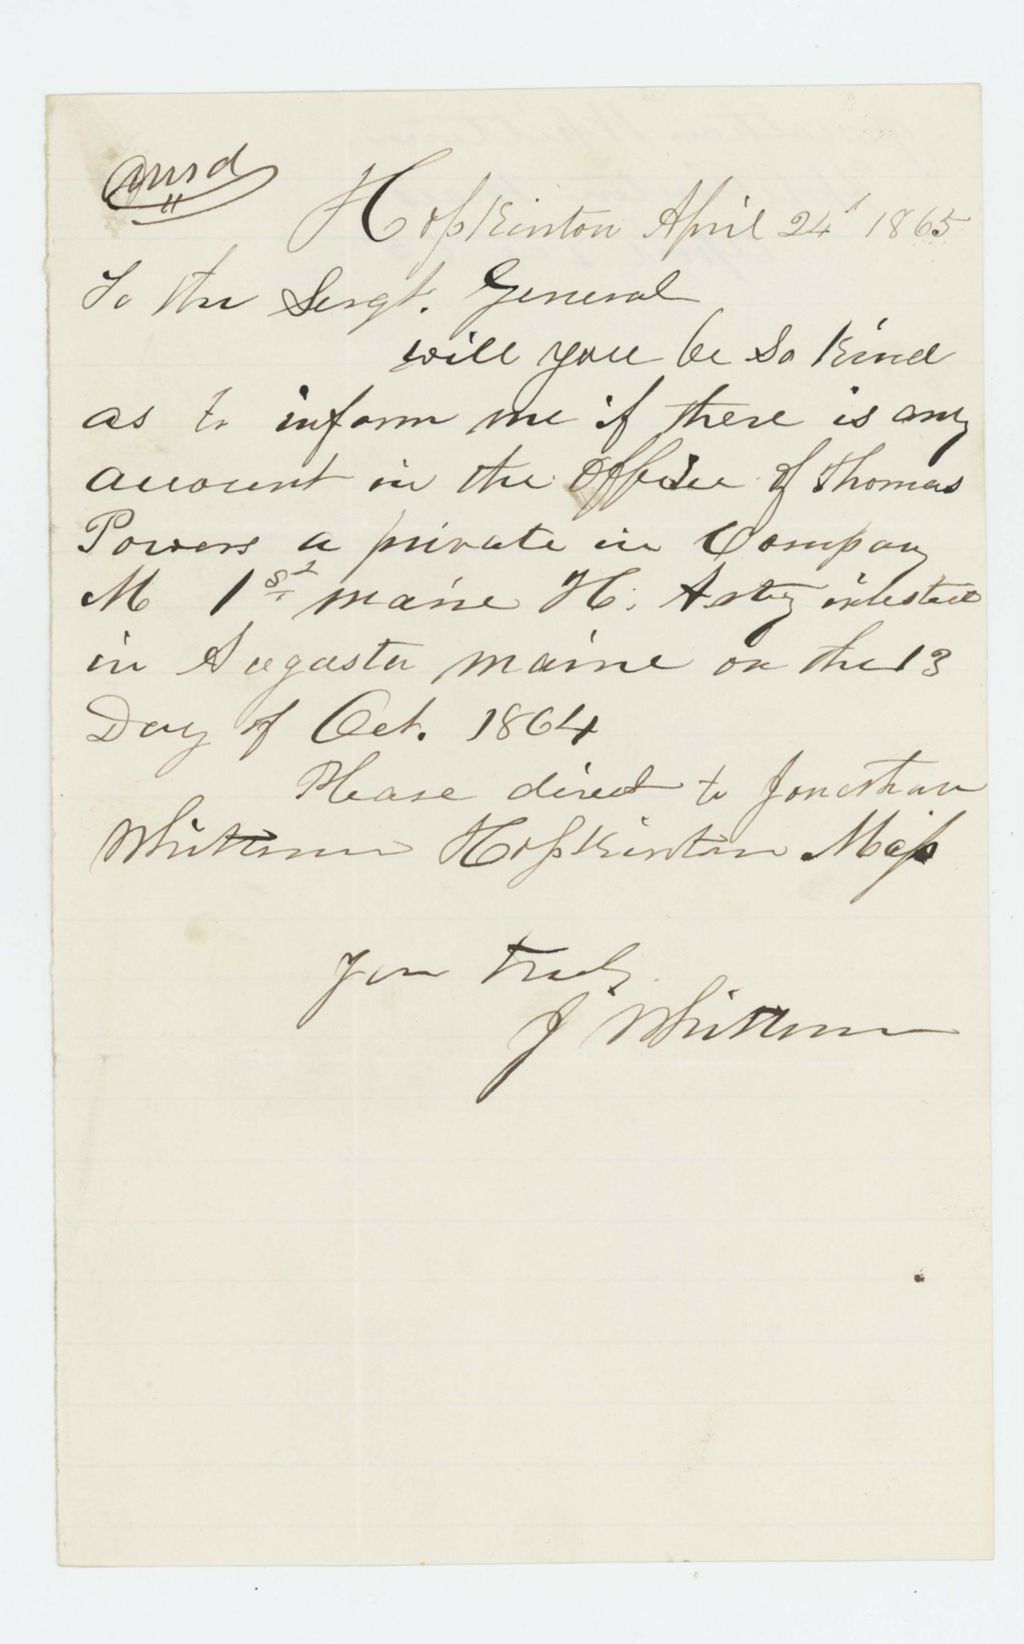 Ansd
Hopkinton April 24d 1865
To the Sergt. General
will you be so kind
as to inform me if there is any
account in the Office of Thomas
Powers a private in Company
M 1st maine H. Arty inlisted
in Augusta maine on the 13
Day of Oct. 1864
Please direct to Jonathan
Whittemore Hopkinton Mass
Your truly
J Whittemore